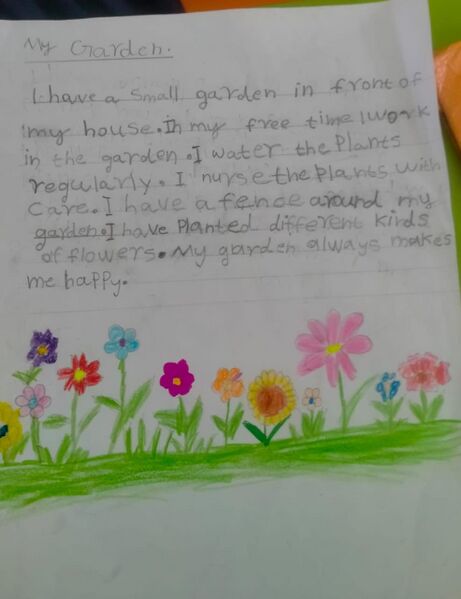 My Garden.
I have a small garden in front of
my house. In my free time I work
in the garden. I water the Plants
regularly. I nurse the Plants with
care. I have a fence around my
garden. I have Planted different kinds
of flowers. My garden always makes
me happy.